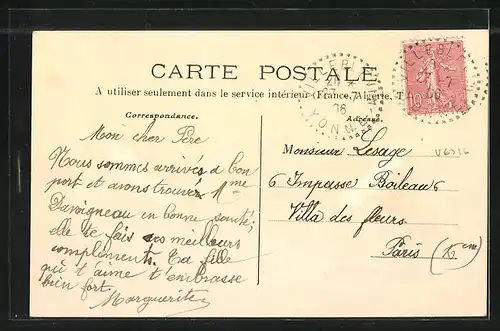 CARTE POSTALE
A utiliser seulement dans le service intérieur (France, Algérie, T
Correspondance.
Adresse.
Mon cher Père
Nous sommes arrivés à bon
port et avons trouvé Mme
Davigneau en bonne santé;
elle te fais ses meilleurs
compliments. Ta fille
qui t'aime t'embrasse
bien fort.
Marguerite
Monsieur Lesage
6 Impasse Boileau 6
Villa des fleurs
Paris (Xeme)
YONNE
10